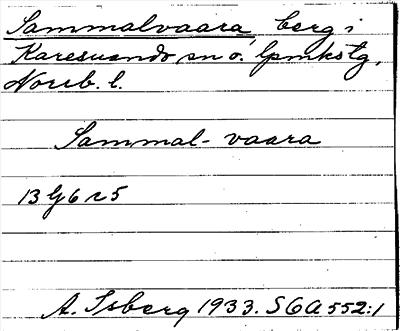 Sammalvaara, berg i
Karesuando sn o. lpmkstg,
Norrb. l.
Sammal-vaara
13 G 6 r 5
A. Isberg 1933. SGA 552:1